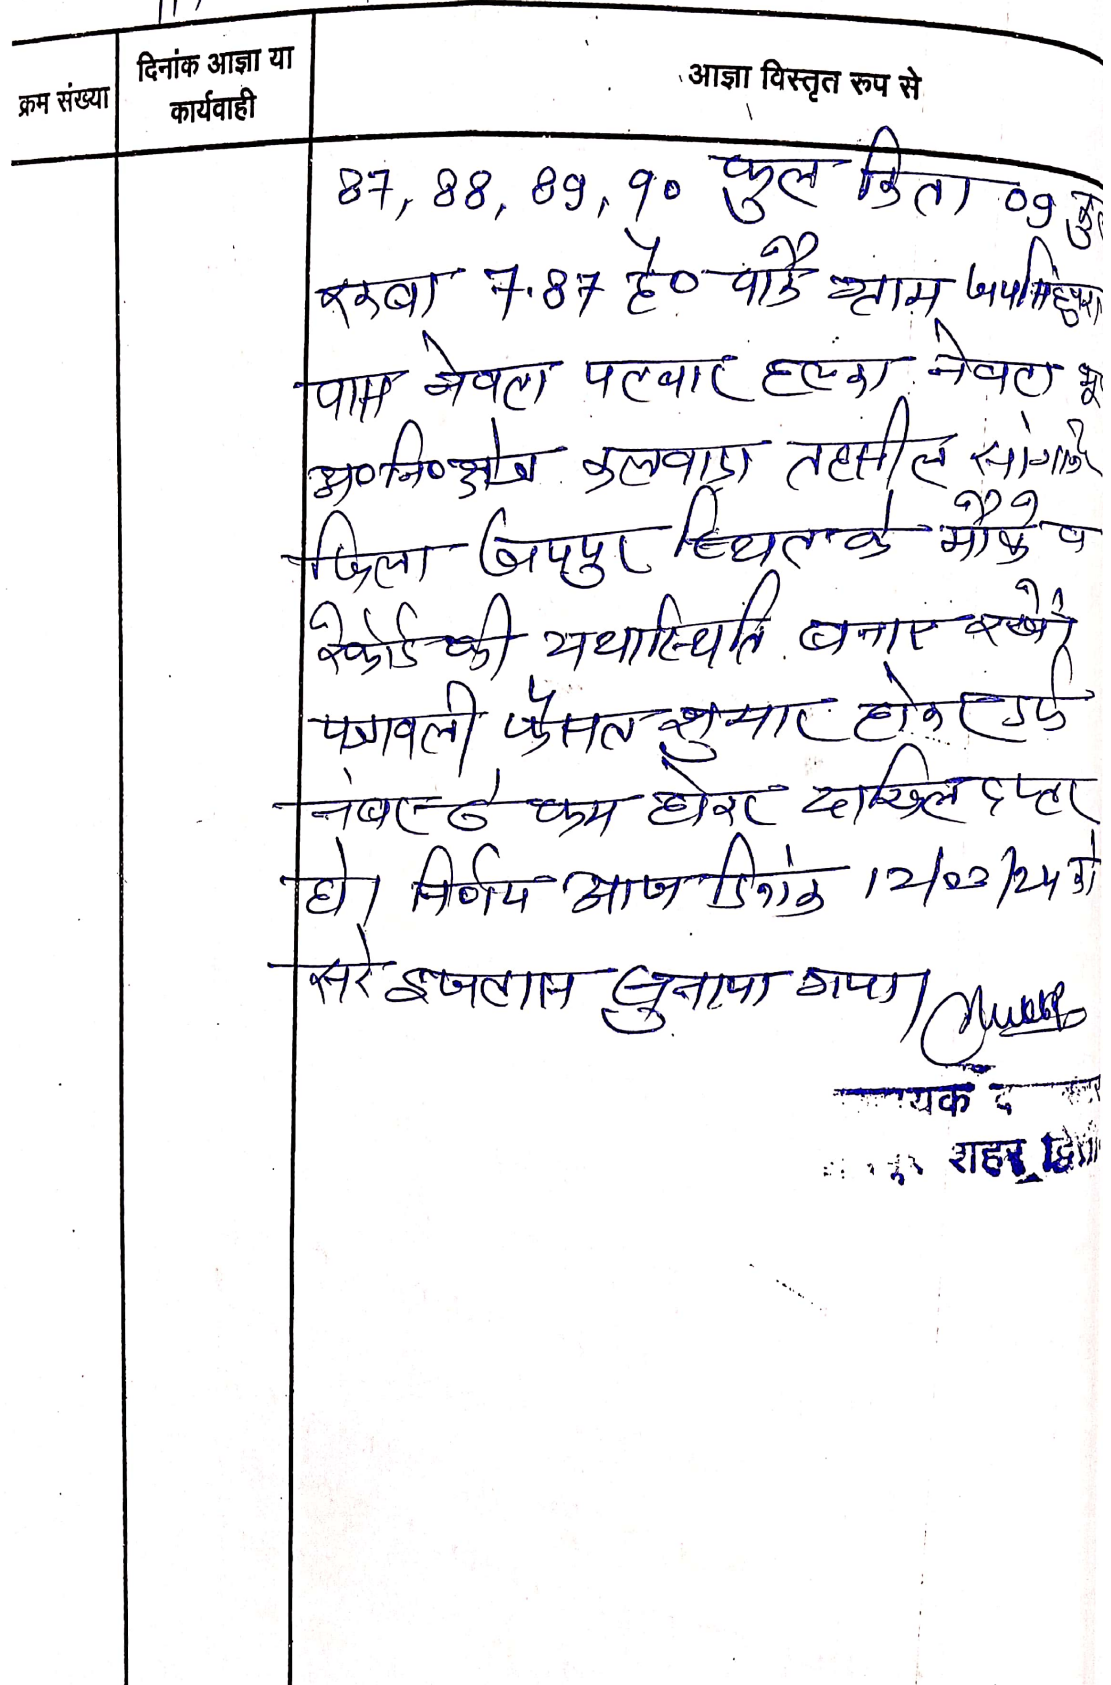 क्रम संख्या
दिनांक आज्ञा या
कार्यवाही
आज्ञा विस्तृत रूप से
87, 88, 89, 90 कुल किता 09
रकबा 7.87 है० वाकै ग्राम जयसिंहपुरा
पास नेवटा पटवार हल्का नेवटा भू
अ०नि०क्षेत्र कलवाडा तहसील सांगानेर
जिला जयपुर स्थित के मौके व
रेकॉर्ड की यथास्थिति बनाए रखें।
पत्रावली फैसल शुमार होकर दर्ज
नंबर से कम होकर दाखिल दफ्तर
हो। निर्णय आज दिनांक 12/02/24 को
सरे इजलास सुनाया गया।
शहर